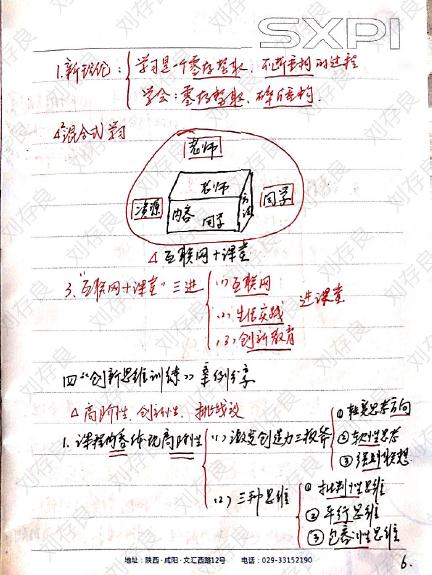 SXPI
1.新理论：{学习是一个零存整取、不断重构的过程
学会：零存整取、碎片重构.
△混合式学习
老师
老师
资源 内容 同学 方法 同学
△互联网+课堂
3."互联网+课堂"三进{(1)互联网
(2)生活实践 进课堂
(3)创新教育
四《创新思维训练》案例分享
△高阶性、创新性、挑战度
1.课程内容体现高阶性{(1)激发创造力三板斧{①发散思考方向
②软性思考
③强制联想
(2)三种思维{①批判性思维
②平行思维
③包容性思维
地址：陕西·咸阳·文汇西路12号 电话：029-33152190
6.
刘存良